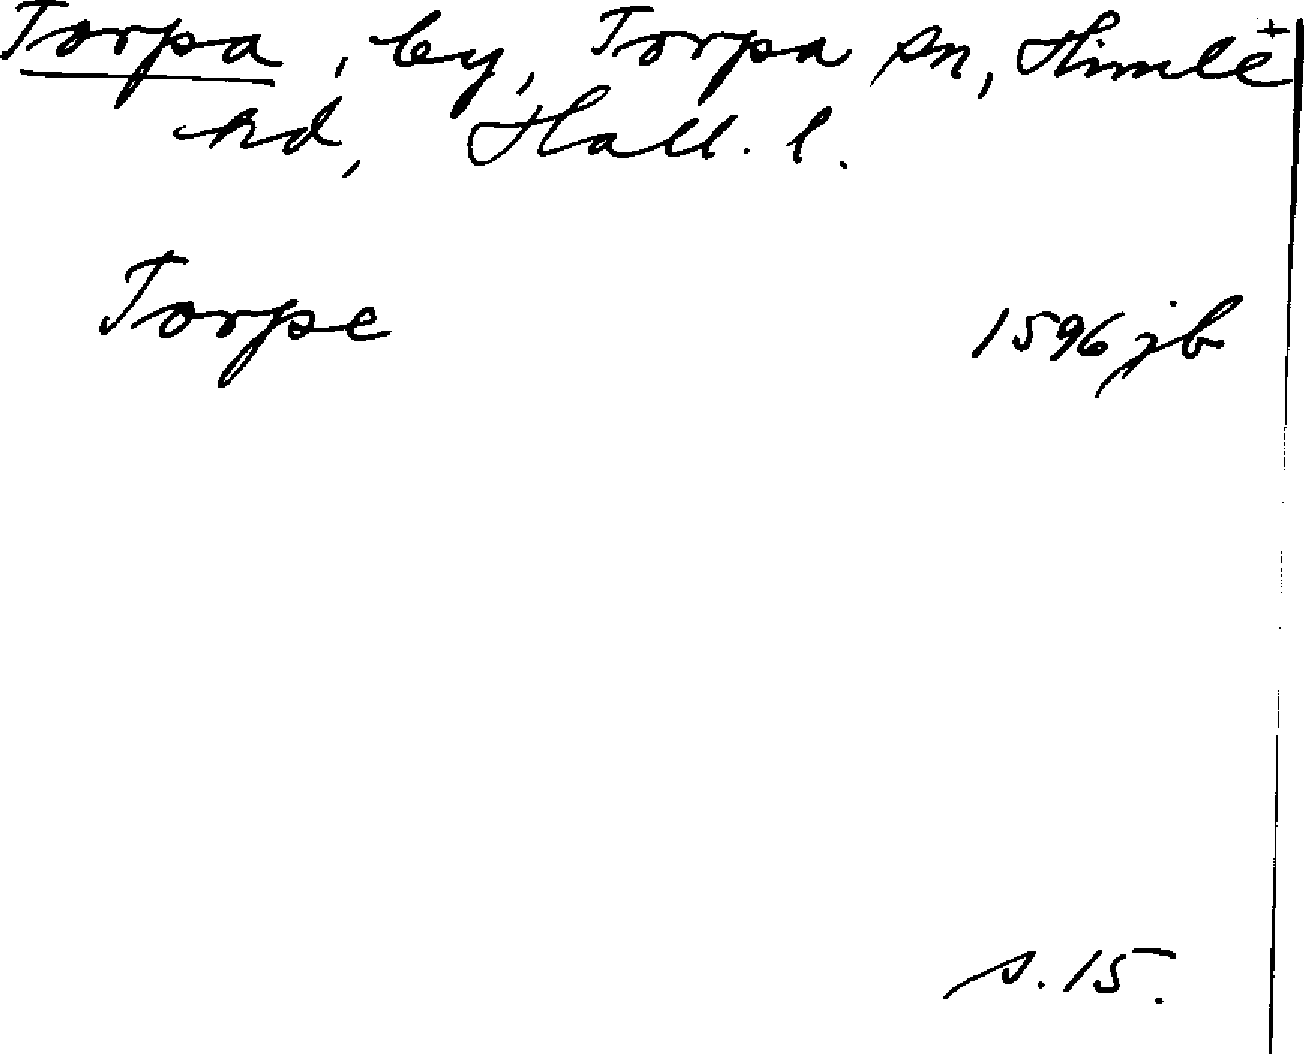 Torpa, by, Torpa sn, Himle
hd, Hall. l.
Torpe 1596 jb
s. 15.